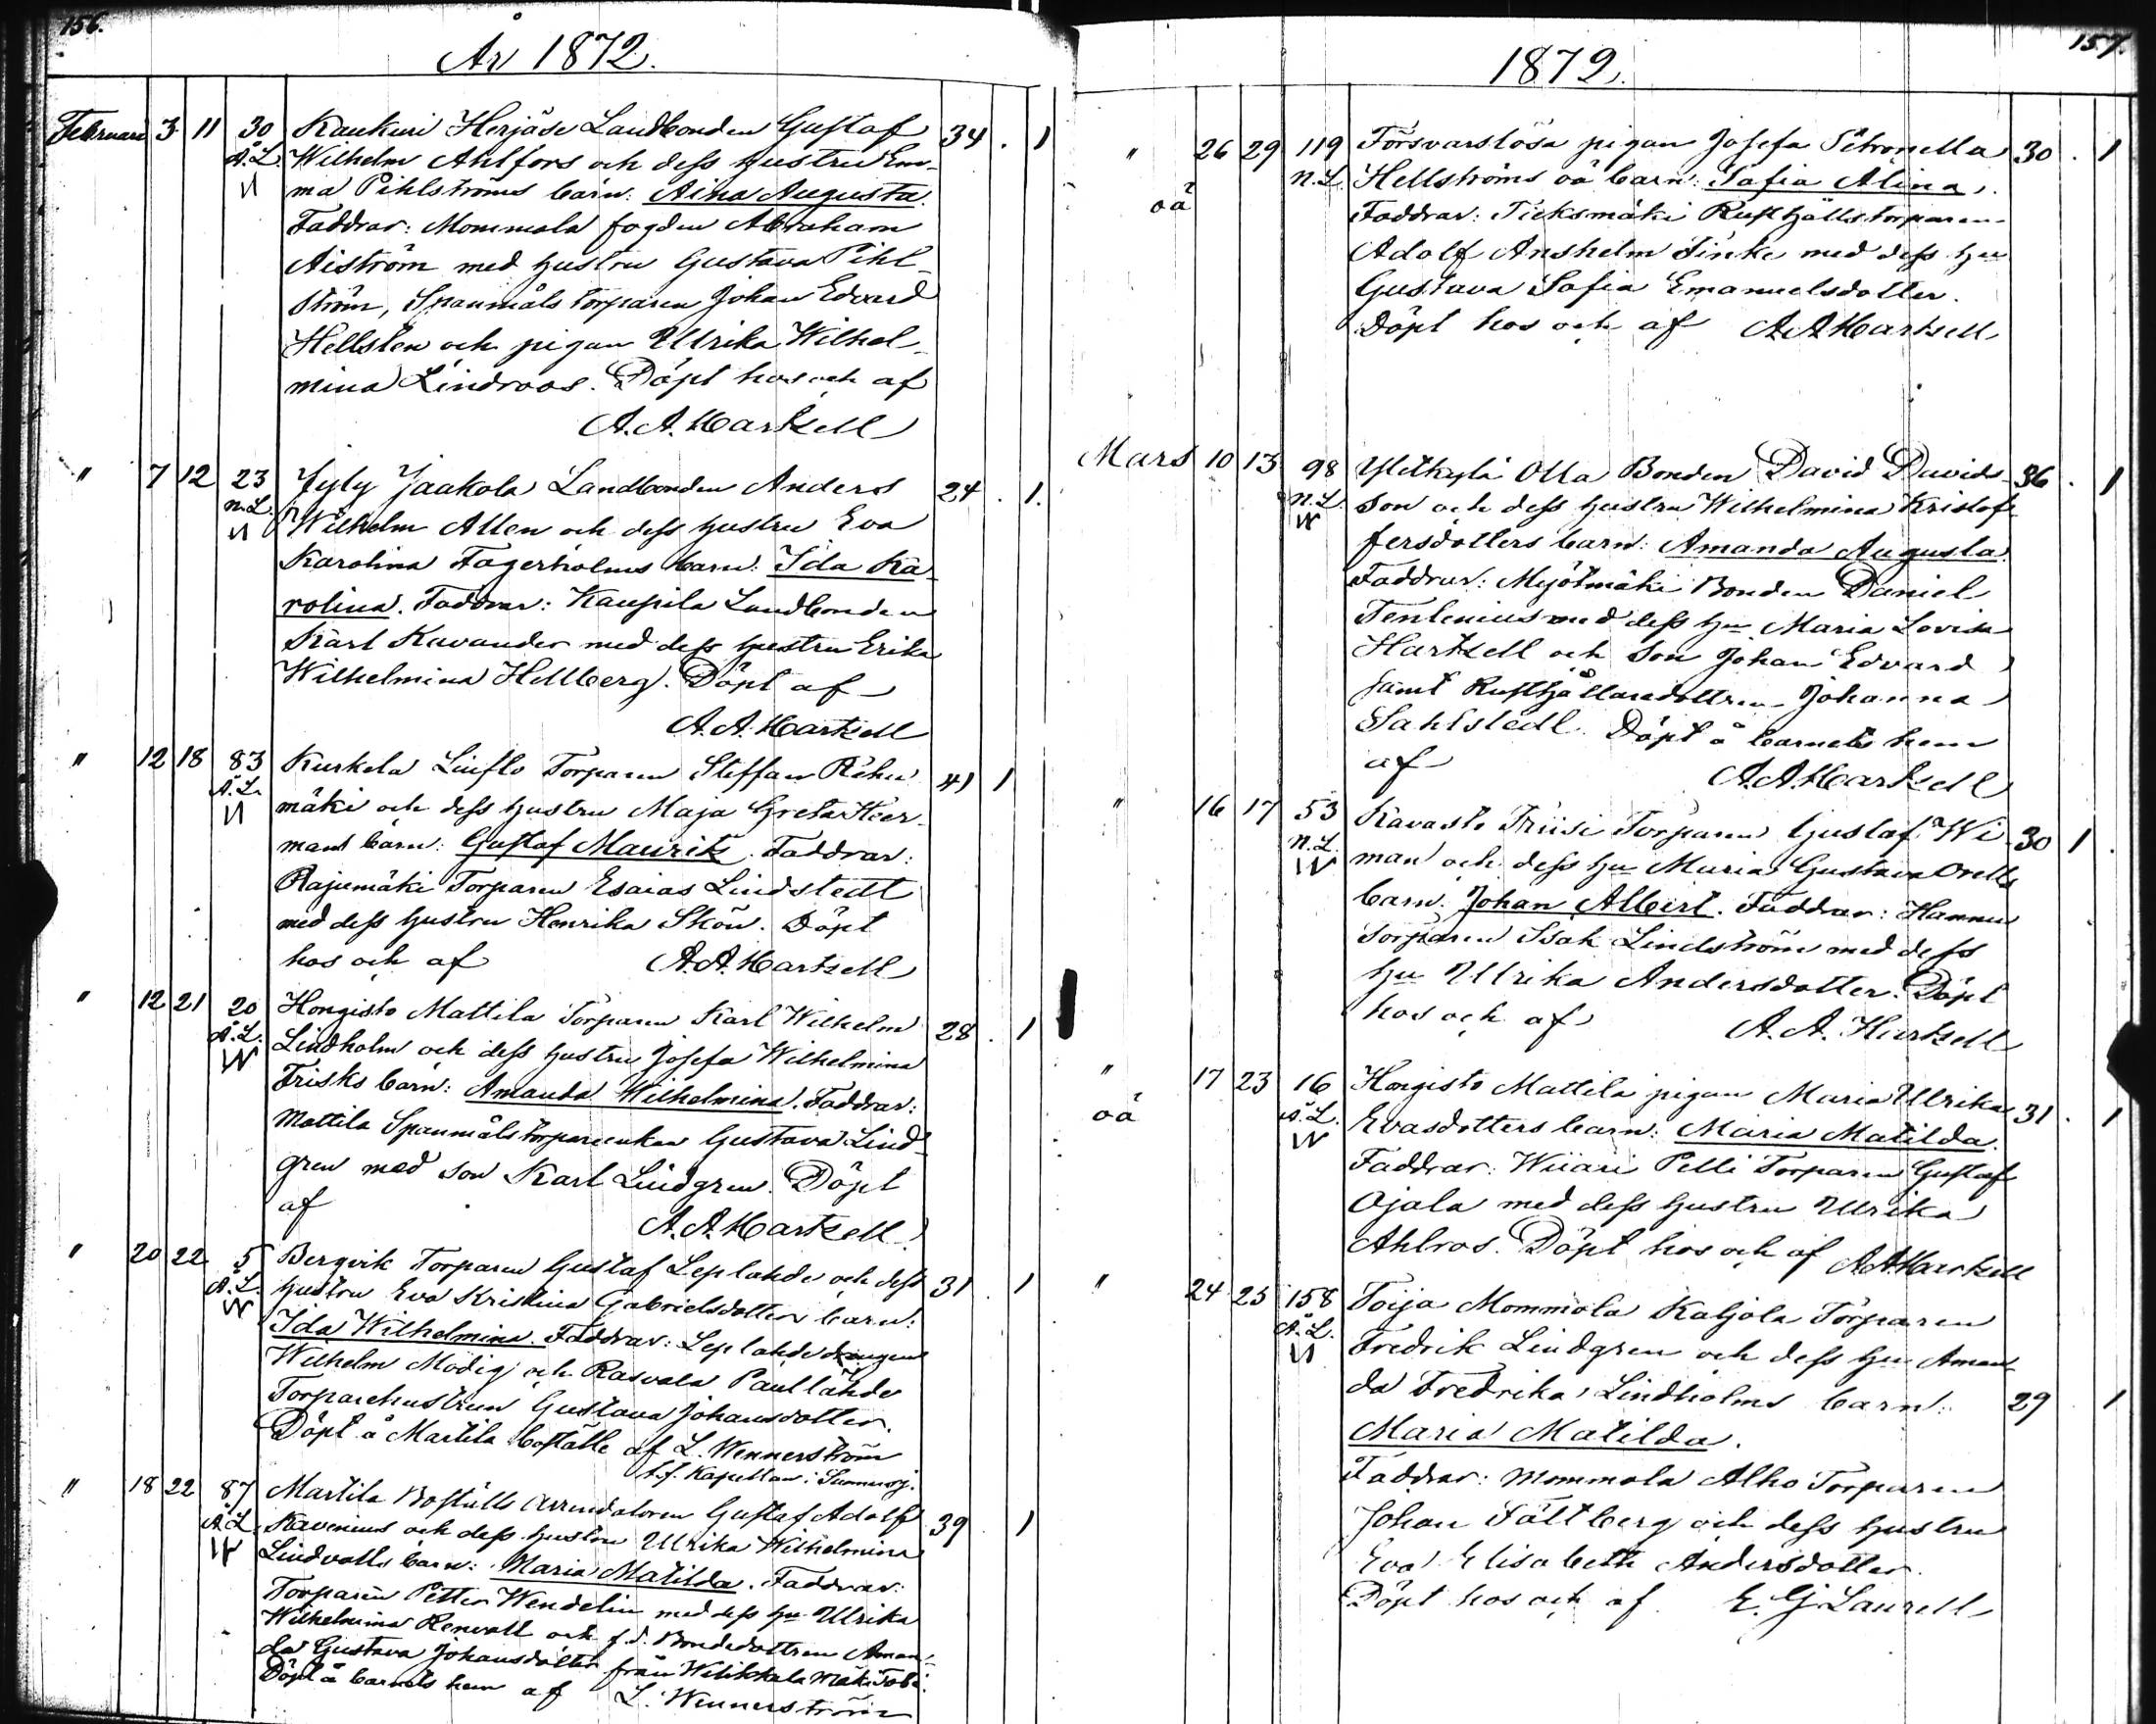 156.
År 1872.
Februari 3 11 30 Kaukuri Herjäse Landbonden Gustaf 34 . 1
Ä.L. Wilhelm Ahlfors och dess hustru Em-
ma Pihlströms barn: Aina Augusta.
Faddrar: Mommola fogden Abraham
Aiström med hustru Gustava Pihl-
ström, Spanmåls torparen Johan Edvard
Hellsten och pigan Ulrika Wilhel-
mina Lindroos. Döpt hos och af
A. A. Hartzell
" 7 12 23 Jyly Jaakola Landbonden Anders 24 . 1.
n.L. Wilhelm Allen och dess hustru Eva
Karolina Fagerholms barn: Ida Ka-
rolina. Faddrar: Kaupila Landbonden
Karl Kavander med dess hustru Erika
Wilhelmina Hellberg. Döpt af
A. A. Hartzell
" 12 18 83 Kurkela Liuflo Torparen Steffan Rihu 41 1
Ä.L. mäki och dess hustru Maja Greta Heer-
mans barn: Gustaf Mauritz. Faddrar:
Rajumäki Torparen Esaias Lindstedt
med dess hustru Henrika Skön. Döpt
hos och af A. A. Hartzell
" 12 21 20 Hongisto Mattila Torparen Karl Wilhelm 28 . 1
Ä.L. Lindholm och dess hustru Josefa Wilhelmina
Frisks barn: Amanda Wilhelmina. Faddrar:
Mattila Spanmåls torpareenkan Gustava Lind-
gren med son Karl Lindgren. Döpt
af
A. A. Hartzell.
" 20 22 5 Bergvik Torparen Gustaf Leplahde och dess 31 . 1
Ä.L. hustru Eva Kristina Gabrielsdotters barn:
Ida Wilhelmina. Faddrar: Leplahde drängen
Wilhelm Modig och Rasvala Paullahde
Torparehustrun Gustava Johansdotter.
Döpt å Martila boställe af L. Wennerström
t.f. Kapellan i
" 18 22 87 Martila Boställs Arrendatoren Gustaf Adolf 39 . 1
Ä.L. Kavenius och dess hustru Ulrika Wilhelmina
Lindvalls barn: Maria Matilda. Faddrar:
Torparen Petter Wendelin med dess hu Ulrika
Wilhelmina Renvall och f.d. Bondedottren Aman-
da Gustava Johansdotter från Wilikkala Mäki Tobi.
Döpt å barnets hem af L. Wennerström
157.
1872.
" 26 29 119 Försvarslösa pigan Josefa Petronella 30 . 1
oä n.L. Hellströms oä barn: Sofia Alina.
Faddrar: Ticksmäki Rusthålls torparen
Adolf Anshelm Finke med dess hu
Gustava Sofia Emanuelsdotter.
Döpt hos och af A A Hartzell
Mars 10 13 98 Yletkylä Olla Bonden David Davids- 36 . 1
n.L. son och dess hustru Wilhelmina Kristof-
fersdotters barn: Amanda Augusta.
Faddrar: Myötmäki Bonden Daniel
Tenlenius med dess hu Maria Lovisa
Hartzell och Son Johan Edvard
samt Rusthållaredottren Johanna
Sahlstedt. Döpt å barnets hem
af A. A. Hartzell
" 16 17 53 Kavasto Friisi Torparen Gustaf Wi- 30 1 .
n.L. man och dess hu Maria Gustava Orells
barn. Johan Albert. Faddrar: Hannu
Torparen Isak Lindström med dess
hu Ulrika Andersdotter. Döpt
hos och af A. A. Hartzell
" 17 23 16 Hongisto Mattila pigan Maria Ulrika 31 . 1
oä Ä.L. Evasdotters barn: Maria Matilda.
Faddrar: Wiiari Pelli Torparen Gustaf
Ojala med dess hustru Ulrika
Ahlros. Döpt hos och af A A Hartzell
" 24 25 158 Toija Mommola Kaljola Torparen
Ä.L. Fredrik Lindgren och dess hu Aman-
da Fredrika Lindholms barn: 29 1
Maria Matilda.
Faddrar: Mommola Alho Torparen
Johan Fältberg och dess hustru
Eva Elisabeth Andersdotter.
Döpt hos och af E. G Laurell